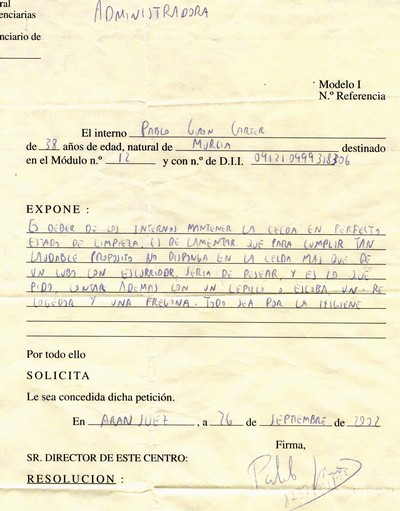 ral
enciarias
ADMINISTRADORA
nciario de
Modelo I
N.º Referencia
El interno PABLO GIRON CARTER
de 38 años de edad, natural de MURCIA destinado
en el Módulo n.º 12 y con n.º de D.I.I.
EXPONE :
ES DEBER DE LOS INTERNOS MANTENER LA CELDA EN PERFECTO
ESTADO DE LIMPIEZA. ES DE LAMENTAR QUE PARA CUMPLIR TAN
LAUDABLE PROPOSITO NO DISPONGA EN LA CELDA MAS QUE DE
UN CUBO CON ESCURRIDOR. SERIA DE DESEAR, Y ES LO QUE
PIDO, CONTAR ADEMAS CON UN CEPILLO O ESCOBA UN RE
COGEDOR Y UNA FREGONA. TODO SEA POR LA HIGIENE
Por todo ello
SOLICITA
Le sea concedida dicha petición.
En ARANJUEZ, a 26 de SEPTIEMBRE de 2002
Firma,
SR. DIRECTOR DE ESTE CENTRO:
RESOLUCION :